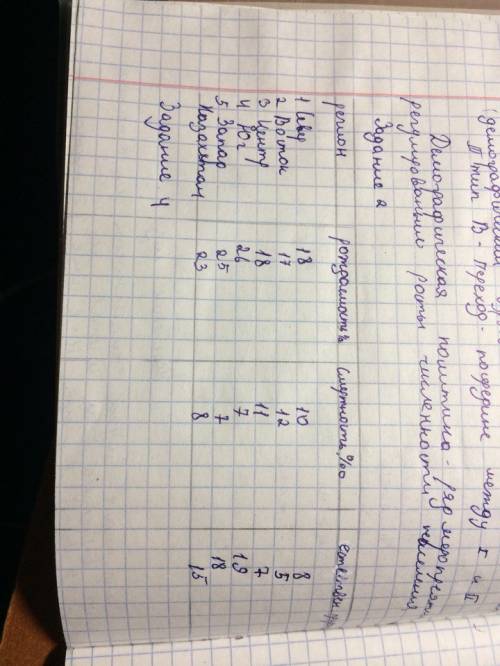 III тип В - переход. подтипие между I и II
Демографическая политика - ряд мероприят.
регулирования роста численности населения
Задание 2
регион рождаемость% смертность,%о естествен
1 Север 18 10 8
2 Восток 17 12 5
3 Центр 18 11 7
4 Юг 26 7 19
5 Запад 25 7 18
Казахстан 23 8 15
Задание 4